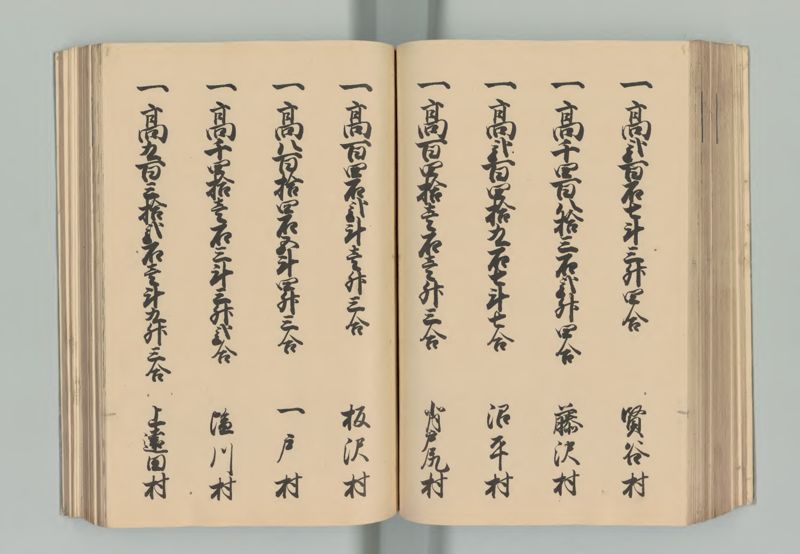 一 高弐百石七斗三升四合 賢谷村
一 高千四百八拾三石弐升四合 藤沢村
一 高弐百四拾九石七斗七合 沼平村
一 高百四拾壱石壱升三合 尻村
一 高百四石弐斗壱升三合 板沢村
一 高八百拾四石五斗四升三合 一戸村
一 高千四拾壱石三斗三升弐合 川村
一 高九百三拾弐石壱斗九升三合 上蓬田村